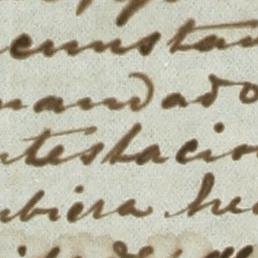 cunstan
mandado
ntestacion
ubiera he